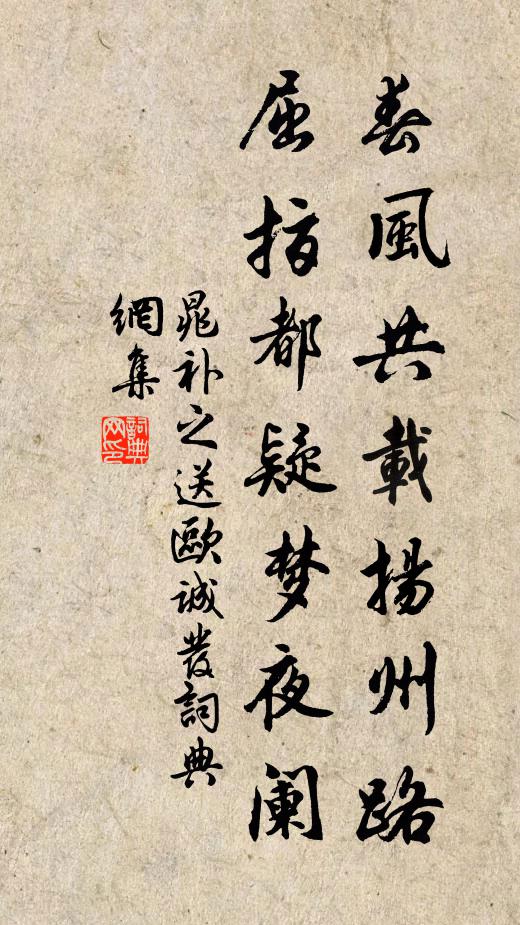 春風共載揚州路
屈指都疑梦夜阑
晁补之送歐诚發詞典
網集
詞典
网印